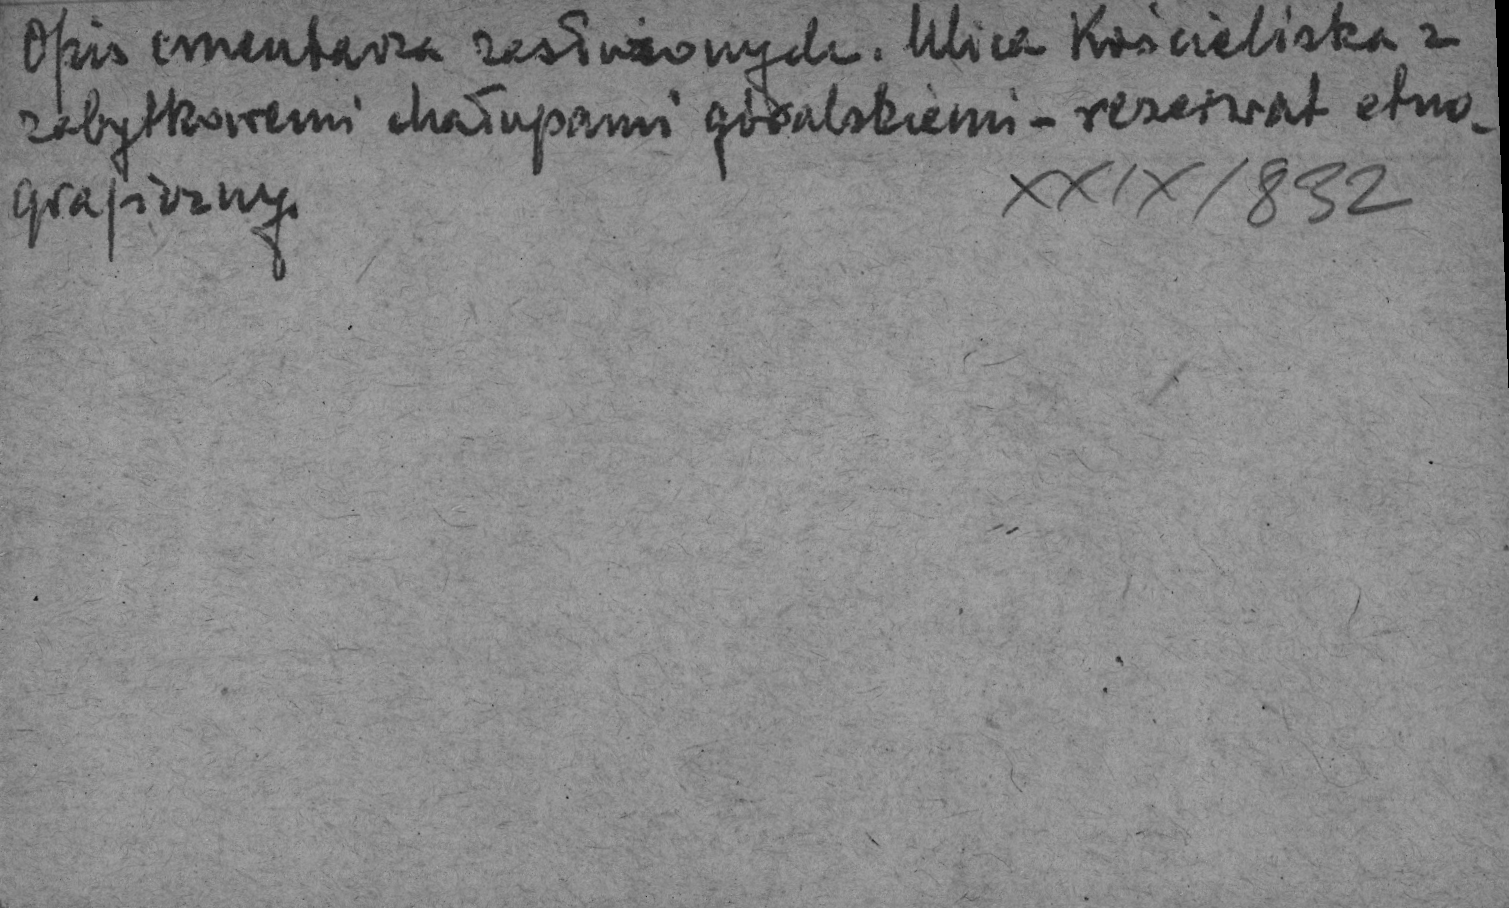 Opis cmentarza zasłużonych. Ulica Kościeliska z
zabytkowemi chałupami góralskiemi - rezerwat etno-
graficzny.
XXIX/832